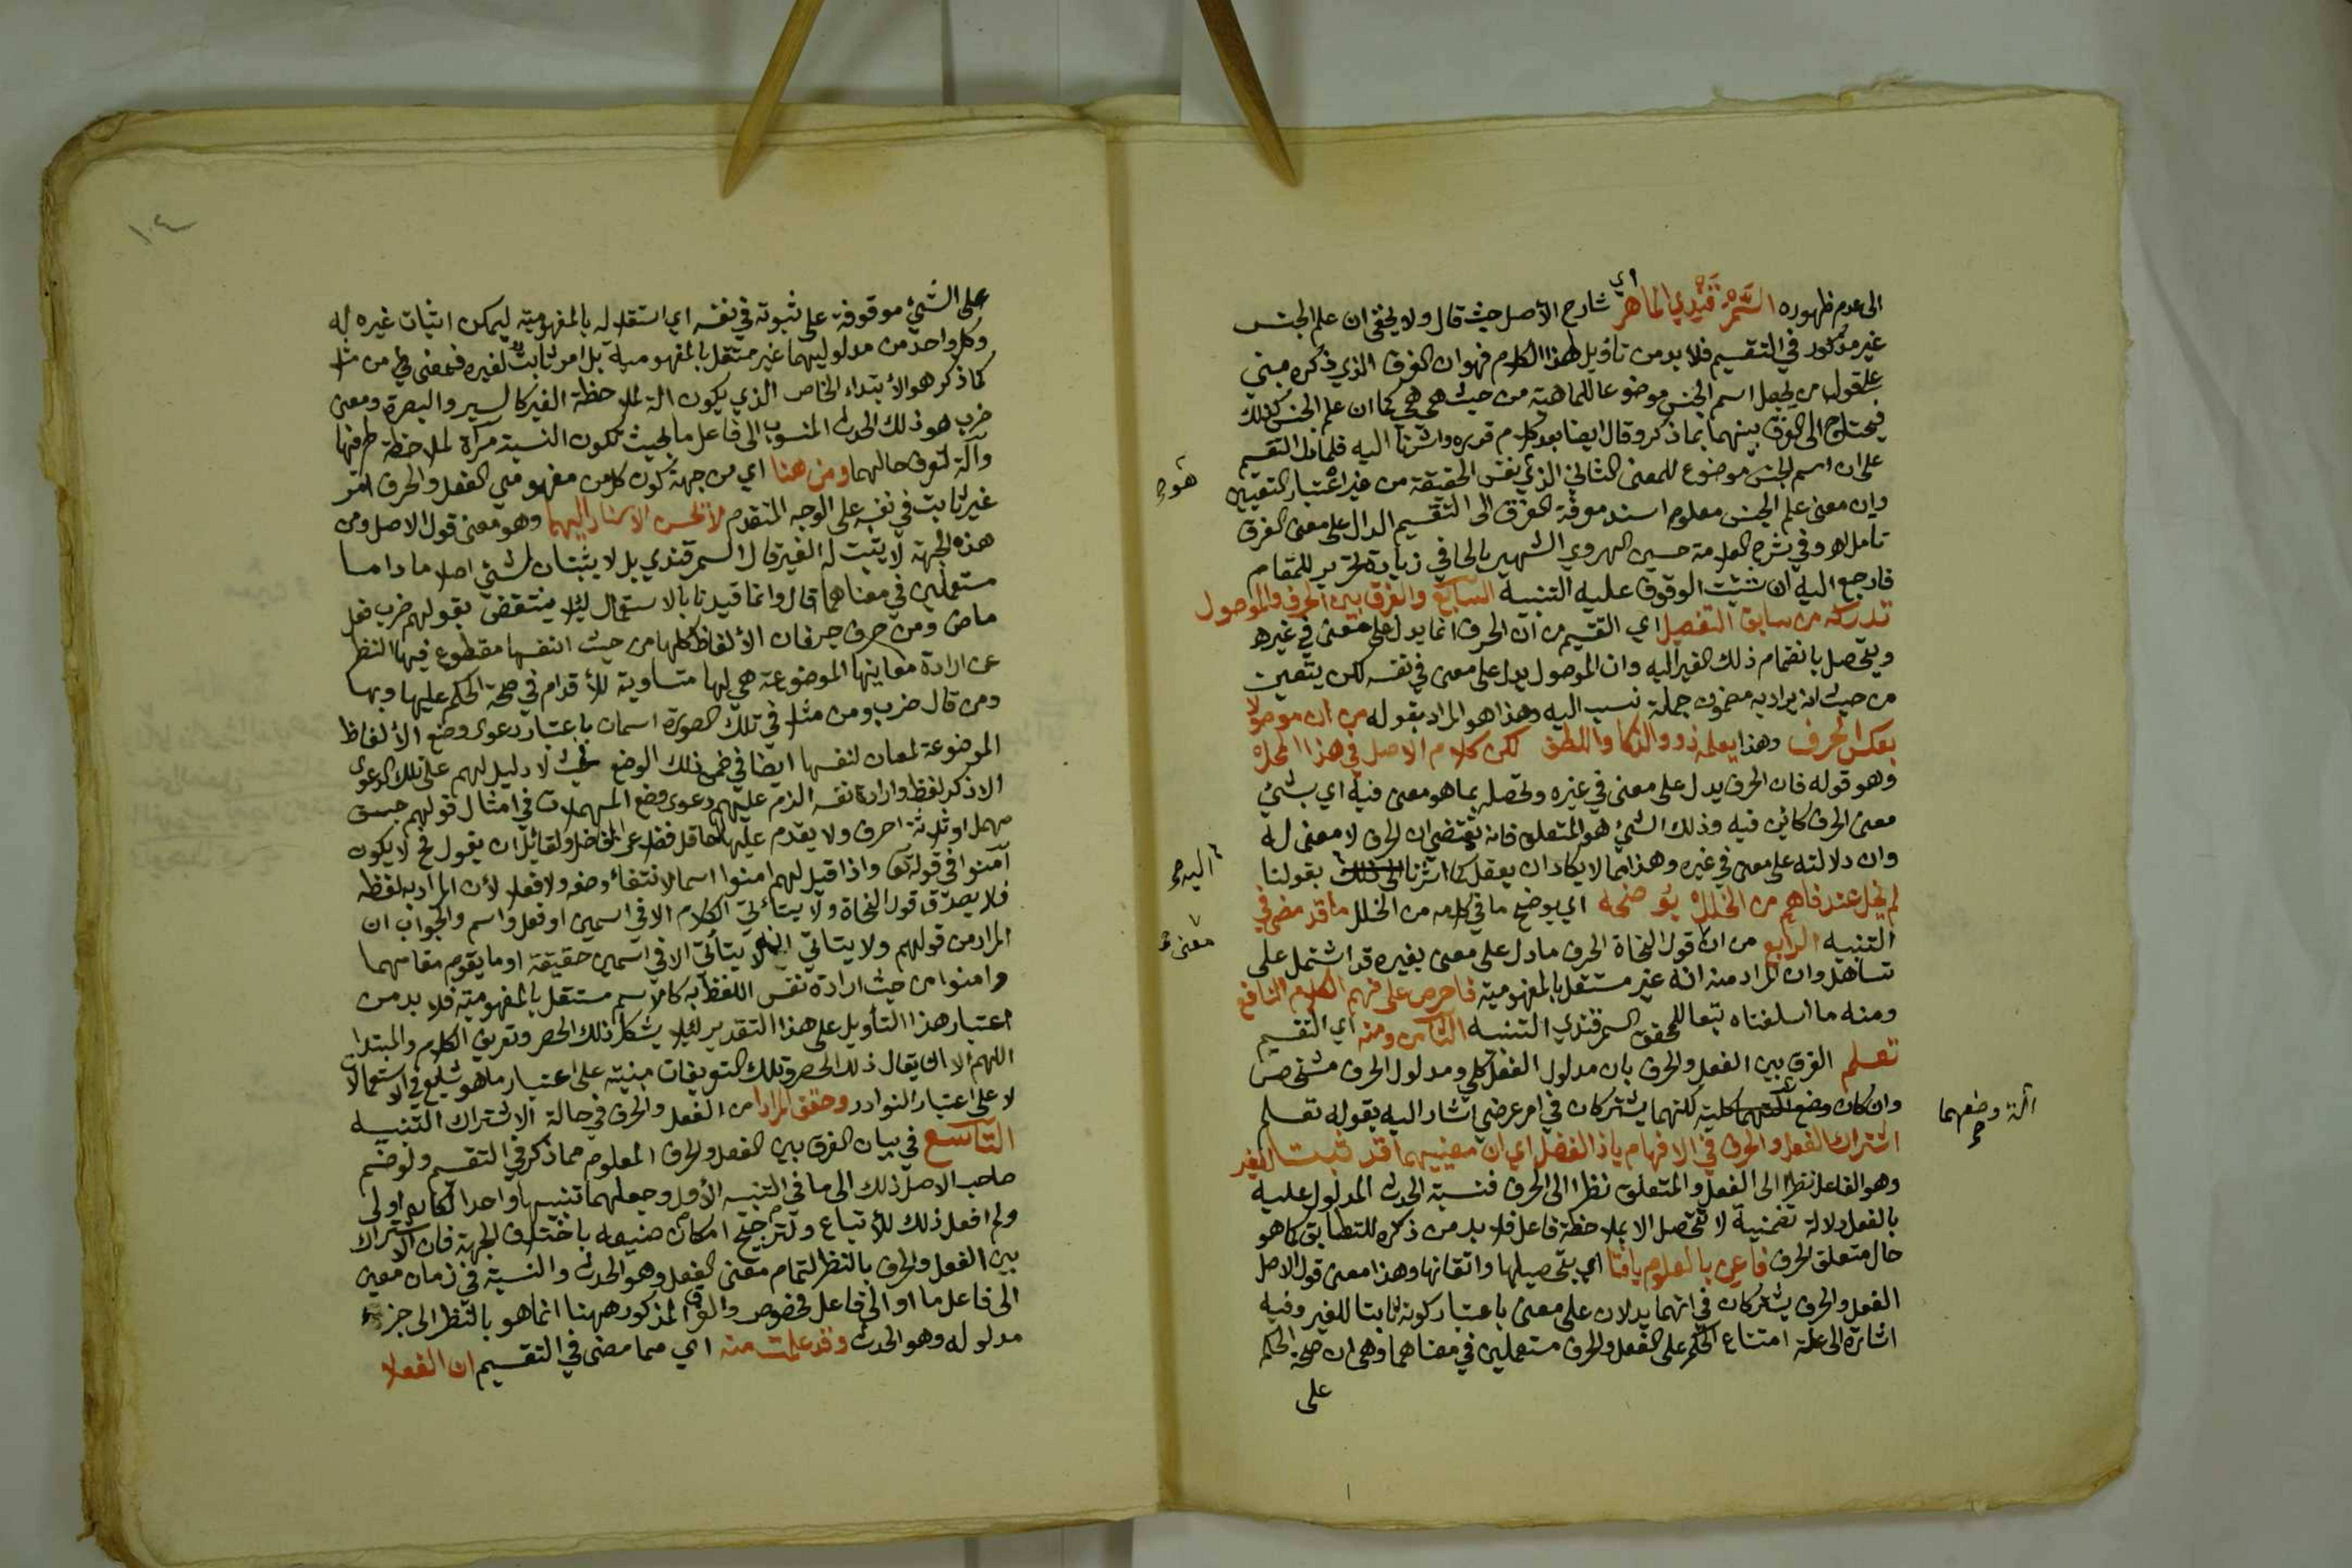 الى عدم ظهوره السمرقندي الماهر اي شارح الأصل حيث قال ولا يخفى ان علم الجنس
غير مذكور في التقسيم فلا بد من تاويل لهذا الكلام فهو ان الفرق الذي ذكره مبني
على قول من يجعل اسم الجنس موضوعا للماهية من حيث هي هي كما ان علم الجنس كذلك
فيحتاج الى الفرق بينهما بما ذكر وقال ايضا بعد كلام قرره واشرنا اليه فلما دل التقسيم
على ان اسم الجنس موضوع للمعنى الثاني الذي نفس الحقيقة من غير اعتبار التعيين
هو صح
وان معنى علم الجنس معلوم اسند معرفة الفرق الى التقسيم الدال على معنى الفرق
تامل اهـ وفي شرح العلامة حسين الهروي الشهير بالحافي زيادة تحرير للمقام
فارجع اليه ان شئت الوقوف عليه التنبيه السابع والفرق بين الحرف والموصول
تدركه من سابق التفصيل اي التقسيم من ان الحرف انما يدل على معنى في غيره
ويتحصل بانضمام ذلك الغير اليه وان الموصول يدل على معنى في نفسه لكن يتعين
من حيث انه يراد به مضمون جملة نسب اليه وهذا هو المراد بقوله من ان موصولا
بعكس الحرف وهذا يعلمه ذوو الذكا واللطف لكن كلام الاصل في هذا المحل
وهو قوله فان الحرف يدل على معنى في غيره وتحصله بما هو معنى فيه اي بشيء
معنى الحرف كائن فيه وذلك الشيء هو المتعلق فانه يقتضي ان الحرف لا معنى له
وان دلالته على معنى في غيره وهذا مما لا يكاد ان يعقل كما اشرنا الى ذلك بقولنا
اليه صح
لم يخل عند فاهم من الخلل يوضحه اي يوضح ما في كلامه من الخلل ما قد مضى في
التنبيه الرابع من ان قول النحاة الحرف ما دل على معنى بغيره قد اشتمل على
معنى صح
تساهل وان المراد منه انه غير مستقل بالمفهومية فاحرص على فهم الكلام النافع
ومنه ما اسلفناه تبعا للمحقق السمرقندي التنبيه الثامن ومنه اي التقسيم
تعلم الفرق بين الفعل والحرف بان مدلول الفعل كلي ومدلول الحرف مشخص
وان كان وضع كلية لكنهما يشتركان في امر عرضي اشار اليه بقوله تعلم
آلة وضعهما صح
اشتراك الفعل والحرف في الافهام ياذا الفضل اي ان معنييهما قد ثبت للغير
وهو الفاعل نظرا الى الفعل والمتعلق نظرا الى الحرف فنسبة الحدث المدلول عليه
بالفعل دلالة تضمنية لا تتحصل الا بملاحظة فاعل فلا بد من ذكره للتطابق كما هو
حال متعلق الحرف فاعن بالعلوم يافتا اي بتحصيلها واتقانها وهذا معنى قول الاصل
الفعل والحرف يشتركان في انهما يدلان على معنى باعتبار كونه ثابتا للغير وفيه
اشارة الى علة امتناع الحكم على الفعل والحرف مستعملين في معناهما وهي ان صحة الحكم
على
١٠٤
على الشيء موقوفة على ثبوته في نفسه اي استقلاله بالمفهومية ليمكن اثبات غيره له
وكل واحد من مدلوليهما غير مستقل بالمفهومية بل امر ثابت لغيره فمعنى من مثلا
كما ذكر هو الابتداء الخاص الذي يكون الة لملاحظة الغير كالسير والبصرة ومعنى
ضرب هو ذلك الحدث المنسوب الى فاعل ما بحيث تكون النسبة مرآة لملاحظة طرفيها
وآلة لتعرف حالهما ومن هنا اي من جهة كون كل من مفهومي الفعل والحرف امر
غير ثابت في نفسه على الوجه المتقدم لا تحسن الاسناد اليهما وهو معنى قول الاصل ومن
هذه الجهة لا يثبت له الغير قال السمرقندي بل لا يثبتان لشيء اصلا ما داما
مستعملين في معناهما قال وانما قيدنا بالاستعمال لئلا ينتقض بقولهم ضرب فعل
ماض ومن حرف جر فان الألفاظ كلها من حيث انفسها مقطوع فيها النظر
عن ارادة معانيها الموضوعة هي لها متساوية للأقدام في صحة الحكم عليها وبها
ومن قال ضرب ومن مثلا في تلك الصورة اسمان باعتبار دعوى وضع الألفاظ
الموضوعة لمعان لنفسها ايضا في ضمن ذلك الوضع بحيث لا دليل لهم على تلك الدعوى
الا ذكر لفظ وارادة نفسه الزم عليهم دعوى وضع المهملات في امثال قولهم جسق
مهمل او ثلاثة احرف ولا يقدم عليها عاقل فضلا عن فاضل ولقائل ان يقول نحو لا يكون
آمنوا في قوله تعا واذا قيل لهم امنوا اسما لانتفاء وضعه ولا فعلا لأن المراد به لفظه
فلا يصدق قول النحاة ولا يتأتى الكلام الا في اسمين او فعل واسم والجواب ان
المراد من قولهم ولا يتاتى انه لا يتأتى الا في اسمين حقيقة او ما يقوم مقامهما
وامنوا من حيث ارادة نفس اللفظ به كالاسم مستقل بالمفهومية فلا بد من
اعتبار هذا التأويل على هذا التقدير لئلا يشكل ذلك الحصر وتعريف الكلام والمبتدا
اللهم الا ان يقال ذلك الحصر وتلك التعريفات مبنية على اعتبار ما هو شايع في الاستعمالات
لا على اعتبار النوادر وحقق المرادا من الفعل والحرف في حالة الاشتراك التنبيه
التاسع في بيان الفرق بين الفعل والحرف المعلوم مما ذكر في التقسيم ولو ضم
صاحب الاصل ذلك الى ما في التنبيه الأول وجعلهما تنبيها واحدا لكان اولى
ولم افعل ذلك للأتباع ولترجيح امكان صنيعه باختلاف الجهة فان الاشتراك
بين الفعل والحرف بالنظر لتمام معنى الفعل وهو الحدث والنسبة في زمان معين
الى فاعل ما او الى فاعل مخصوص والفرق المذكور ههنا انما هو بالنظر الى جزء
مدلوله وهو الحدث وقد علمت منه اي مما مضى في التقسيم ان الفعلا